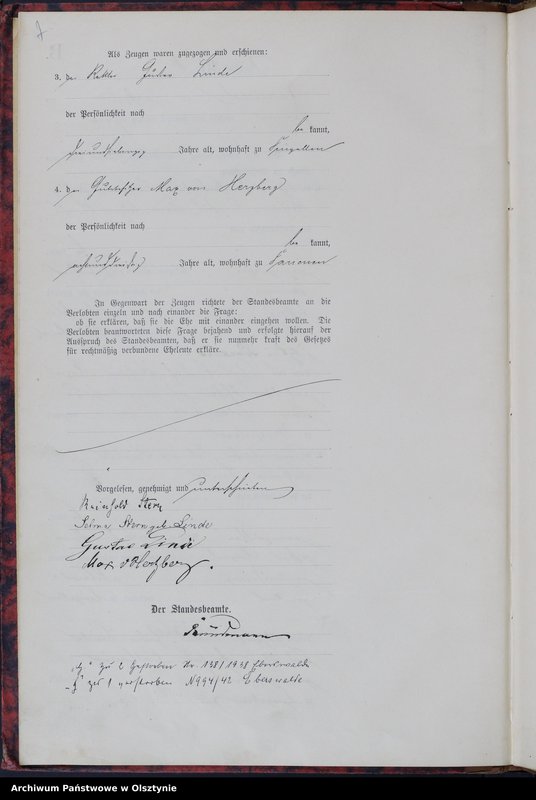 Als Zeugen waren zugezogen und erschienen:
3. der Rektor Gustav Linde
der Persönlichkeit nach
be kannt,
Jahre alt, wohnhaft zu
4. der Gutsbesitzer Max von Herzberg
der Persönlichkeit nach
be kannt,
Jahre alt, wohnhaft zu
In Gegenwart der Zeugen richtete der Standesbeamte an die
Verlobten einzeln und nach einander die Frage:
ob sie erklären, daß sie die Ehe mit einander eingehen wollen. Die
Verlobten beantworteten diese Frage bejahend und erfolgte hierauf der
Ausspruch des Standesbeamten, daß er sie nunmehr kraft des Gesetzes
für rechtmäßig verbundene Eheleute erkläre.
Vorgelesen, genehmigt und unterschrieben
Reinhold Stern
Selma Stern geb. Linde
Gustav Linde
Max v Herzberg.
Der Standesbeamte.
zu 2 gestorben Nr. 138/1938 Eberswalde
zu 1 verstorben N 994/42 Eberswalde
Archiwum Państwowe w Olsztynie